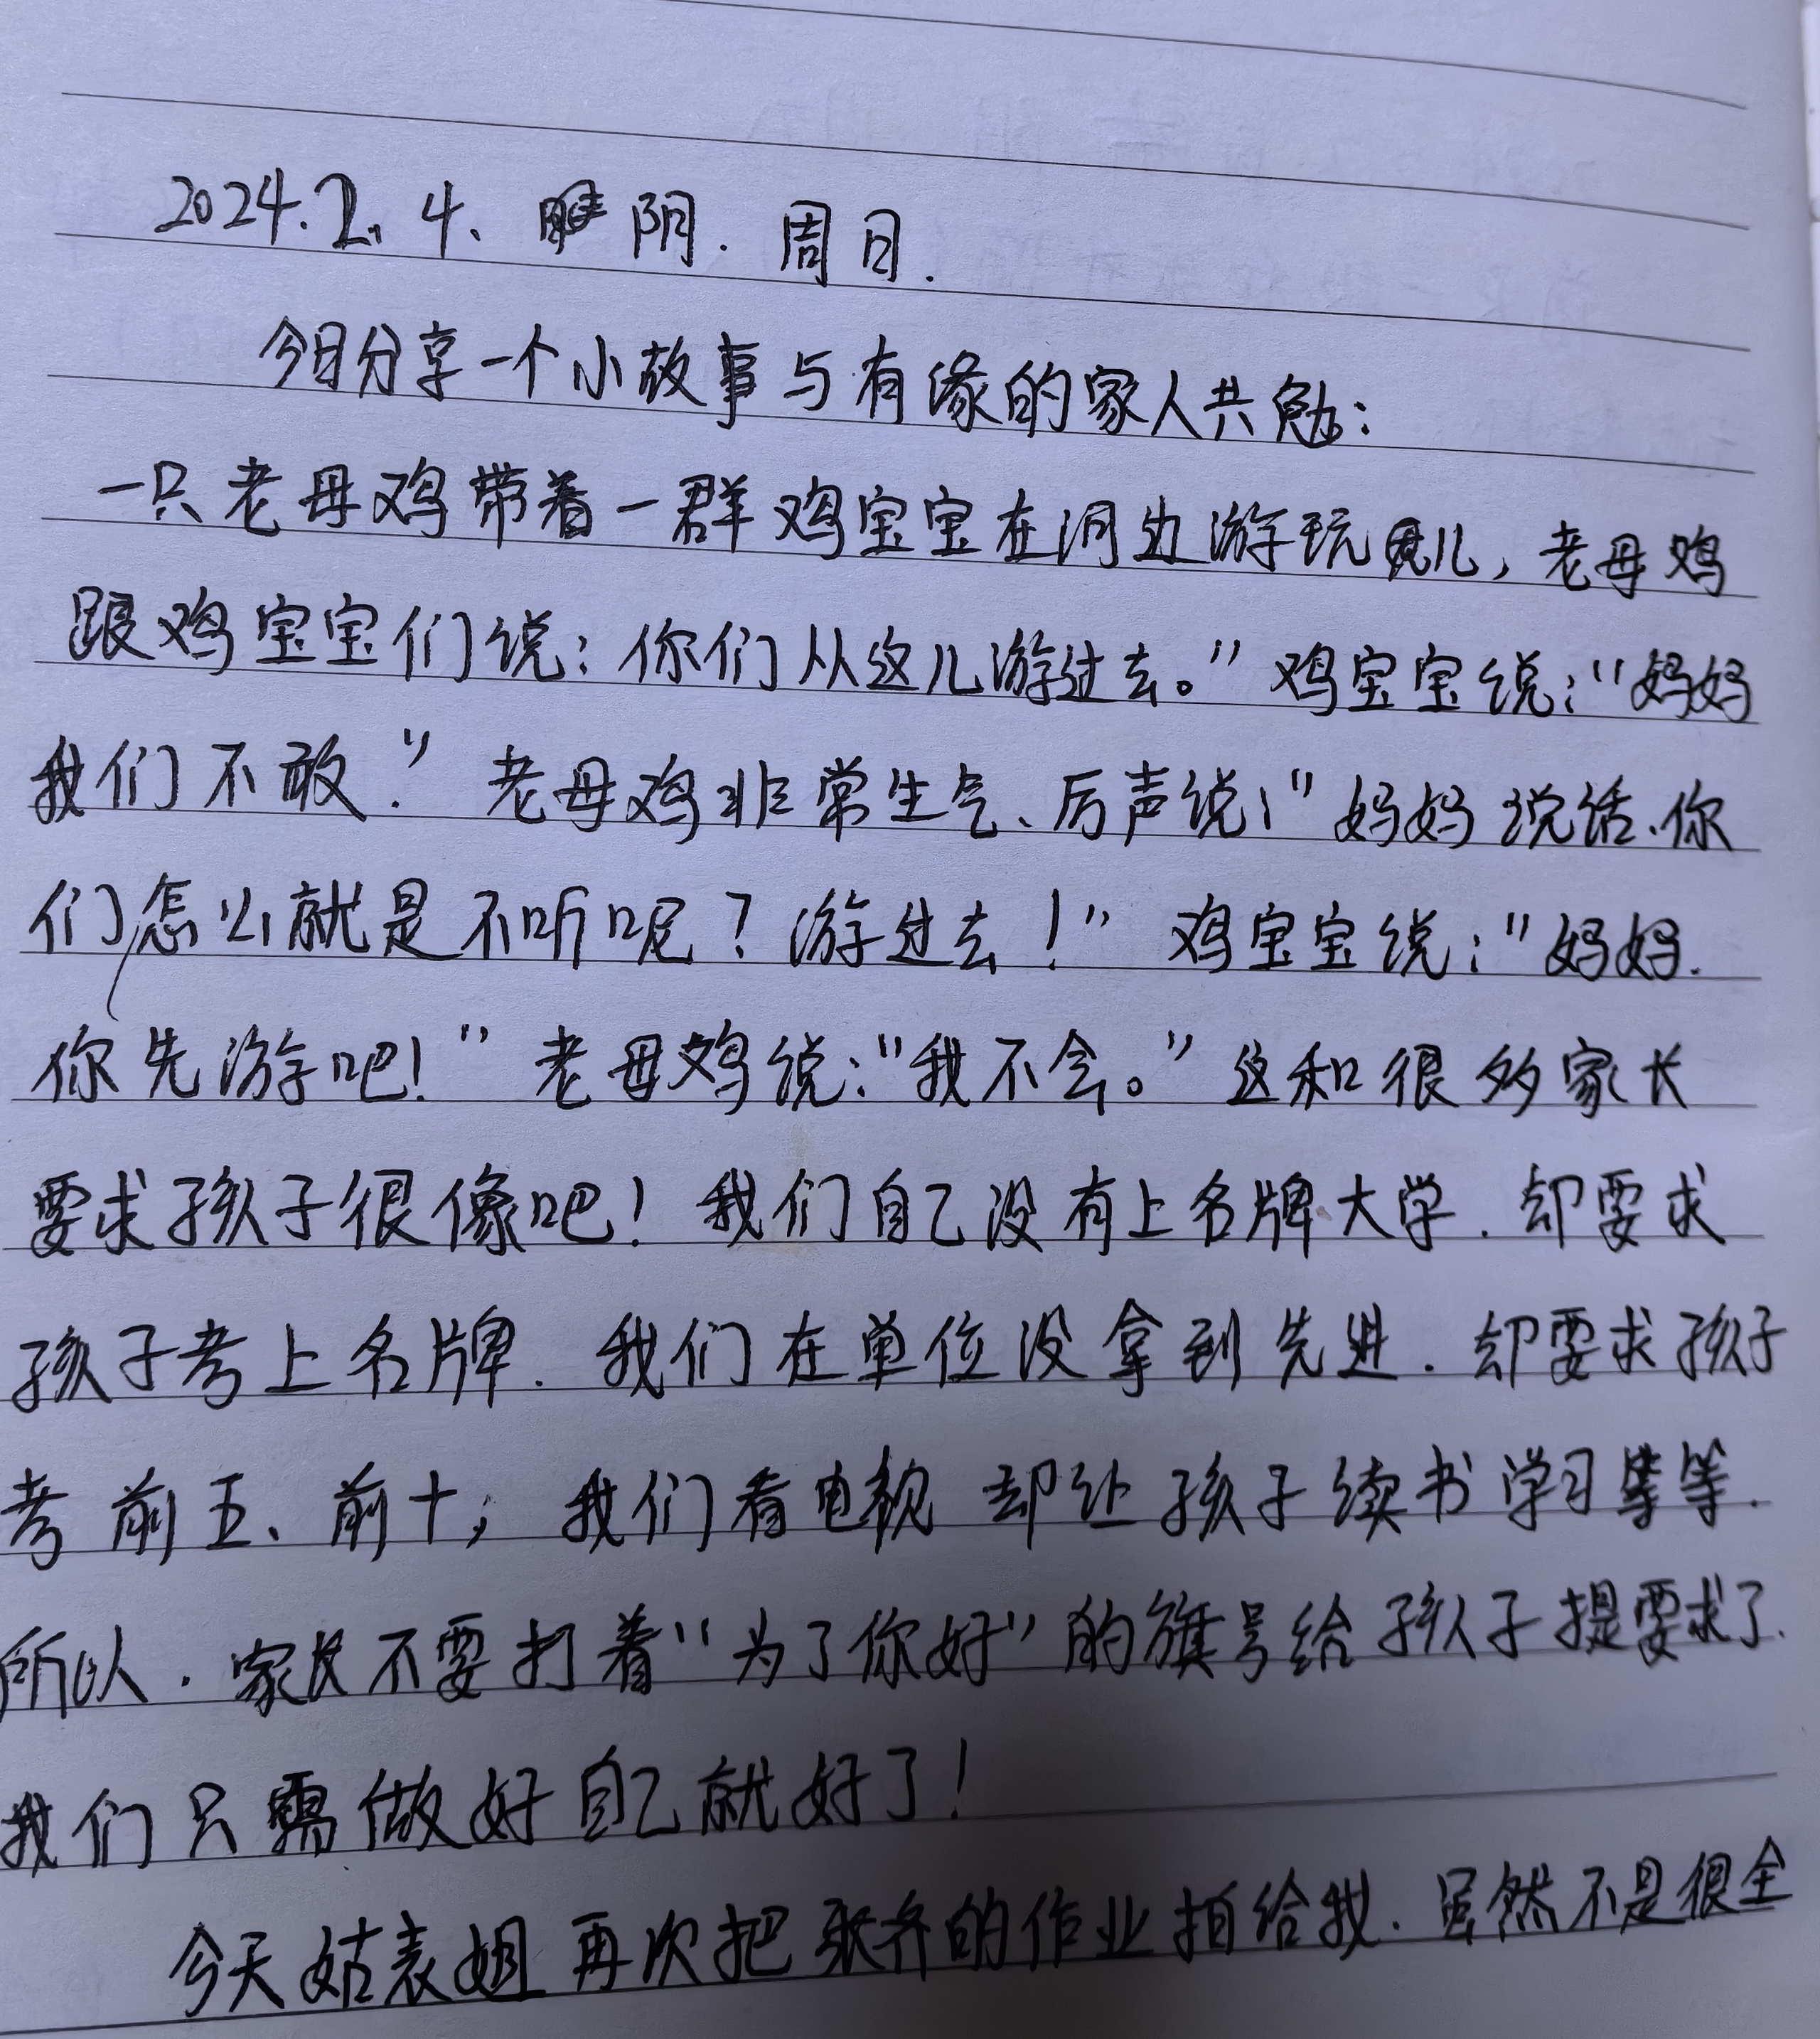 2024.2.4、阴.周日.
今日分享一个小故事与有缘的家人共勉:
一只老母鸡带着一群鸡宝宝在河边游玩儿,老母鸡
跟鸡宝宝们说:你们从这儿游过去。”鸡宝宝说:“妈妈
我们不敢.”老母鸡非常生气、厉声说:“妈妈说话.你
们怎么就是不听呢?游过去!”鸡宝宝说:“妈妈.
你先游吧!”老母鸡说:“我不会。”这和很多家长
要求孩子很像吧!我们自己没有上名牌大学.却要求
孩子考上名牌.我们在单位没拿到先进.却要求孩子
考前五、前十;我们看电视却让孩子读书学习等等.
所以.家长不要打着“为了你好”的旗号给孩子提要求了.
我们只需做好自己就好了!
今天姑表姐再次把的作业拍给我.虽然不是很全